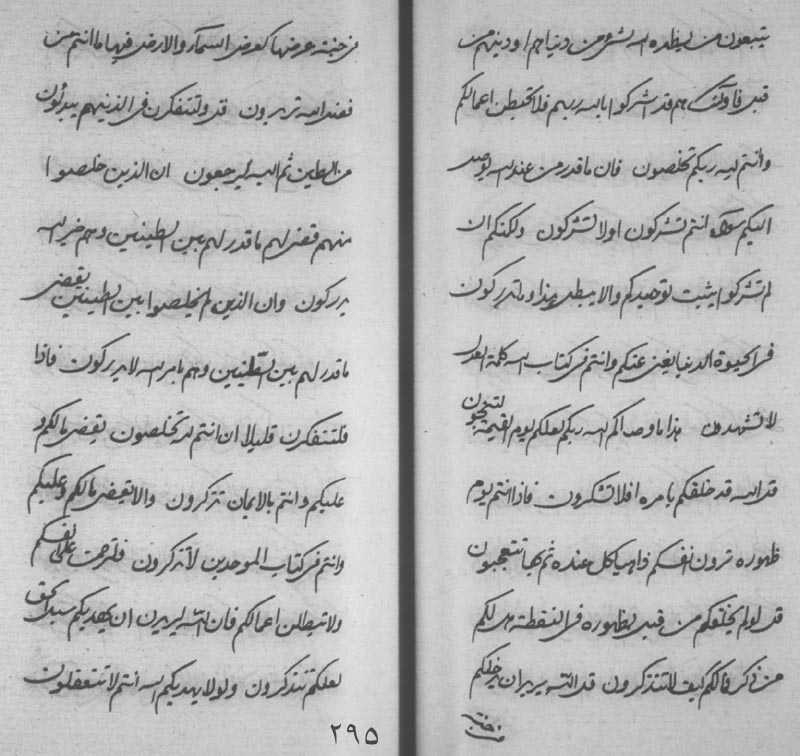 يتبعون من يظهره الله لتشرعن دنياهم او دينهم من
قبل فاولئك هم قد اشركوا بالله ربهم فلا تحبطن اعمالكم
وانتم لله ربكم تخلصون فان ما قدر من عند الله يوصل
اليكم سواء انتم تشركون او لا تشركون ولكنكم ان
لم تشركوا يثبت توحيدكم والا يبطل هذا وما تدركون
في الحيوة الدنيا يغني عنكم وانتم في كتاب الله كلمة العدل
لا تشهدون هذا ما وصاكم الله ربكم لعلكم يوم القيمة لتنجون
قل الله قد خلقكم بامره افلا تشكرون فاذا انتم يوم
ظهوره ترون انفسكم في هياكل عنده ثم بها تتعجبون
قل لو لم يخلقكم من قبل بظهوره في النقطة هل لكم
من ذكر فما لكم كيف لا تتذكرون قل الله يريد ان يدخلكم
من جنته
في جنة عرضها كعرض السماء والارض فيها ما انتم من
فضل الله تريدون قل ولتتفكرن في الذينهم يبدلون
من الطين ثم اليه ليرجعون ان الذين خلصوا
منهم قضى لهم ما قدر لهم بين الطينين وهم خير الله
يدركون وان الذين لم يخلصوا بين الطينين يقضى
ما قدر لهم بين الطينين وهم بامر الله لا يدركون فاذا
فلتتفكرن قليلا ان انتم لله تخلصون يقضى ما لكم و
عليكم وانتم بالايمان تذكرون والا يقضى ما لكم وعليكم
وانتم في كتاب الموحدين لا تذكرون فلترحمن على انفسكم
ولا تبطلن اعمالكم فان الله ليريدن ان يهديكم سبيل الحق
لعلكم تتذكرون ولولا يهديكم الله انتم لا تتعقلون
٢٩٥